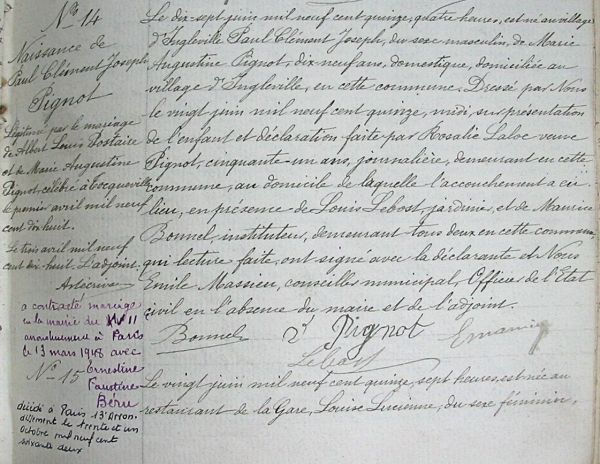 N° 14
Naissance de
Paul Clément Joseph
Pignot
Légitimé par le mariage
de Albert Louis Postaire
et de Marie Augustine
Pignot, célébré à Tocqueville
le premier avril mil neuf
cent dix huit.
Le trois avril mil neuf
cent dix huit. L'adjoint.
a contracté mariage
en la mairie du 11
arrondissement à Paris
le 13 mars 1948 avec
Ernestine
Faustine
Béru
N° 15
décédé à Paris 13e arron-
dissement le trente et un
Octobre mil neuf cent
soixante deux
Le dix-sept juin mil neuf cent quinze, quatre heures, est né au village
d'Ingleville Paul Clément Joseph, du sexe masculin, de Marie
Augustine Pignot, dix neuf ans, domestique, domiciliée au
village d'Ingleville, en cette commune. Dressé par Nous
le vingt juin mil neuf cent quinze, midi, sur présentation
de l'enfant et déclaration faite par Rosalie Laloc veuve
Pignot, cinquante-un ans, journalière, demeurant en cette
commune, au domicile de laquelle l'accouchement a eu
lieu, en présence de Louis Lebost, jardinier, et de Maurice
Bonnel, instituteur, demeurant tous deux en cette commune,
qui lecture faite, ont signé avec la déclarante et Nous
Emile Massieu, conseiller municipal, Officier de l'Etat
civil en l'absence du maire et de l'adjoint.
Bonnel Vve Pignot
Lebost
Le vingt juin mil neuf cent quinze, sept heures, est née au
restaurant de la Gare, Louise Lucienne, du sexe féminin,